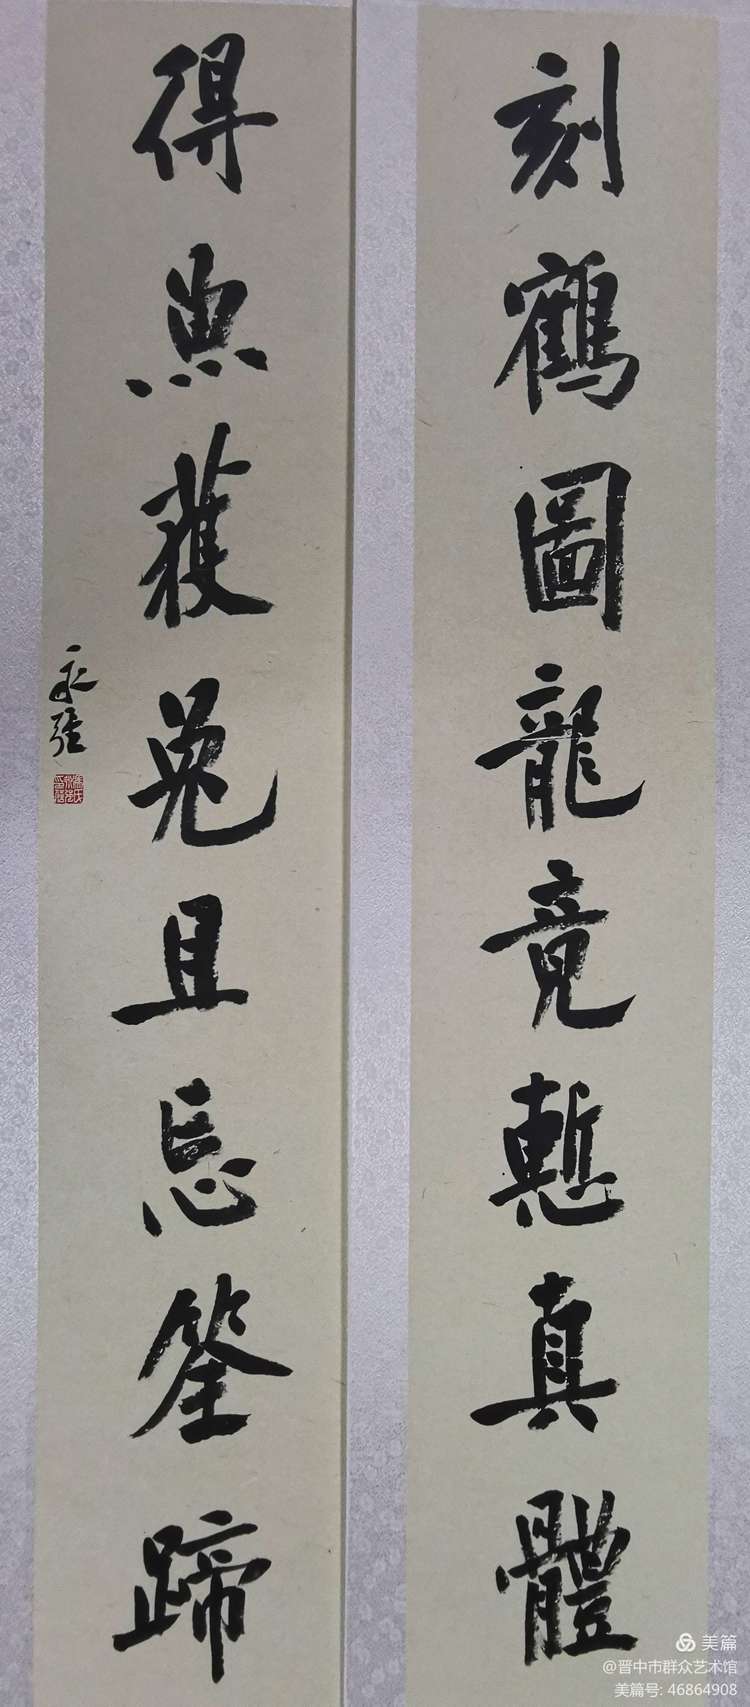 刻鶴圖龍竟慙真體
得魚獲兔且忘筌蹄
永強
美篇
@晋中市群众艺术馆
美篇号: 46864908